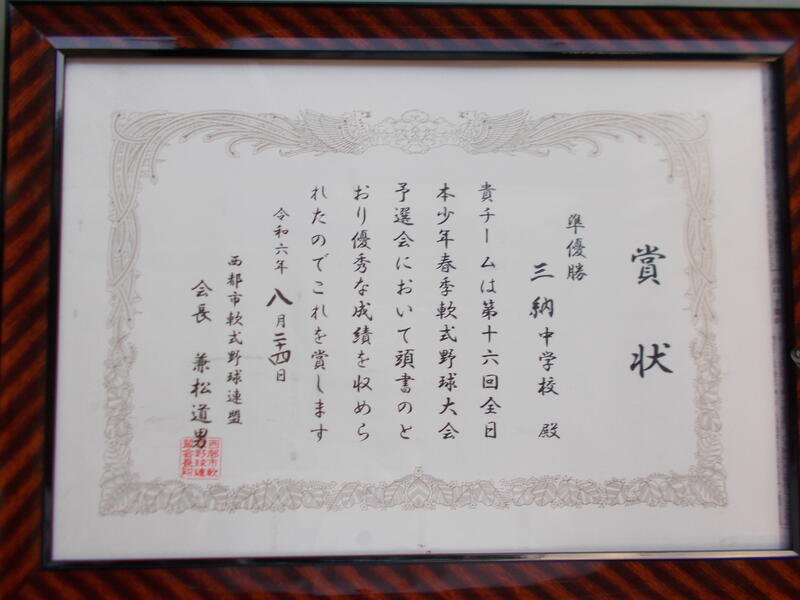 賞状
準優勝
三納中学校 殿
貴チームは第十六回全日
本少年春季軟式野球大会
予選会において頭書のと
おり優秀な成績を収めら
れたのでこれを賞します
令和六年八月二十四日
西都市軟式野球連盟
会長 兼松道男
西都市軟
野球連
盟会長印